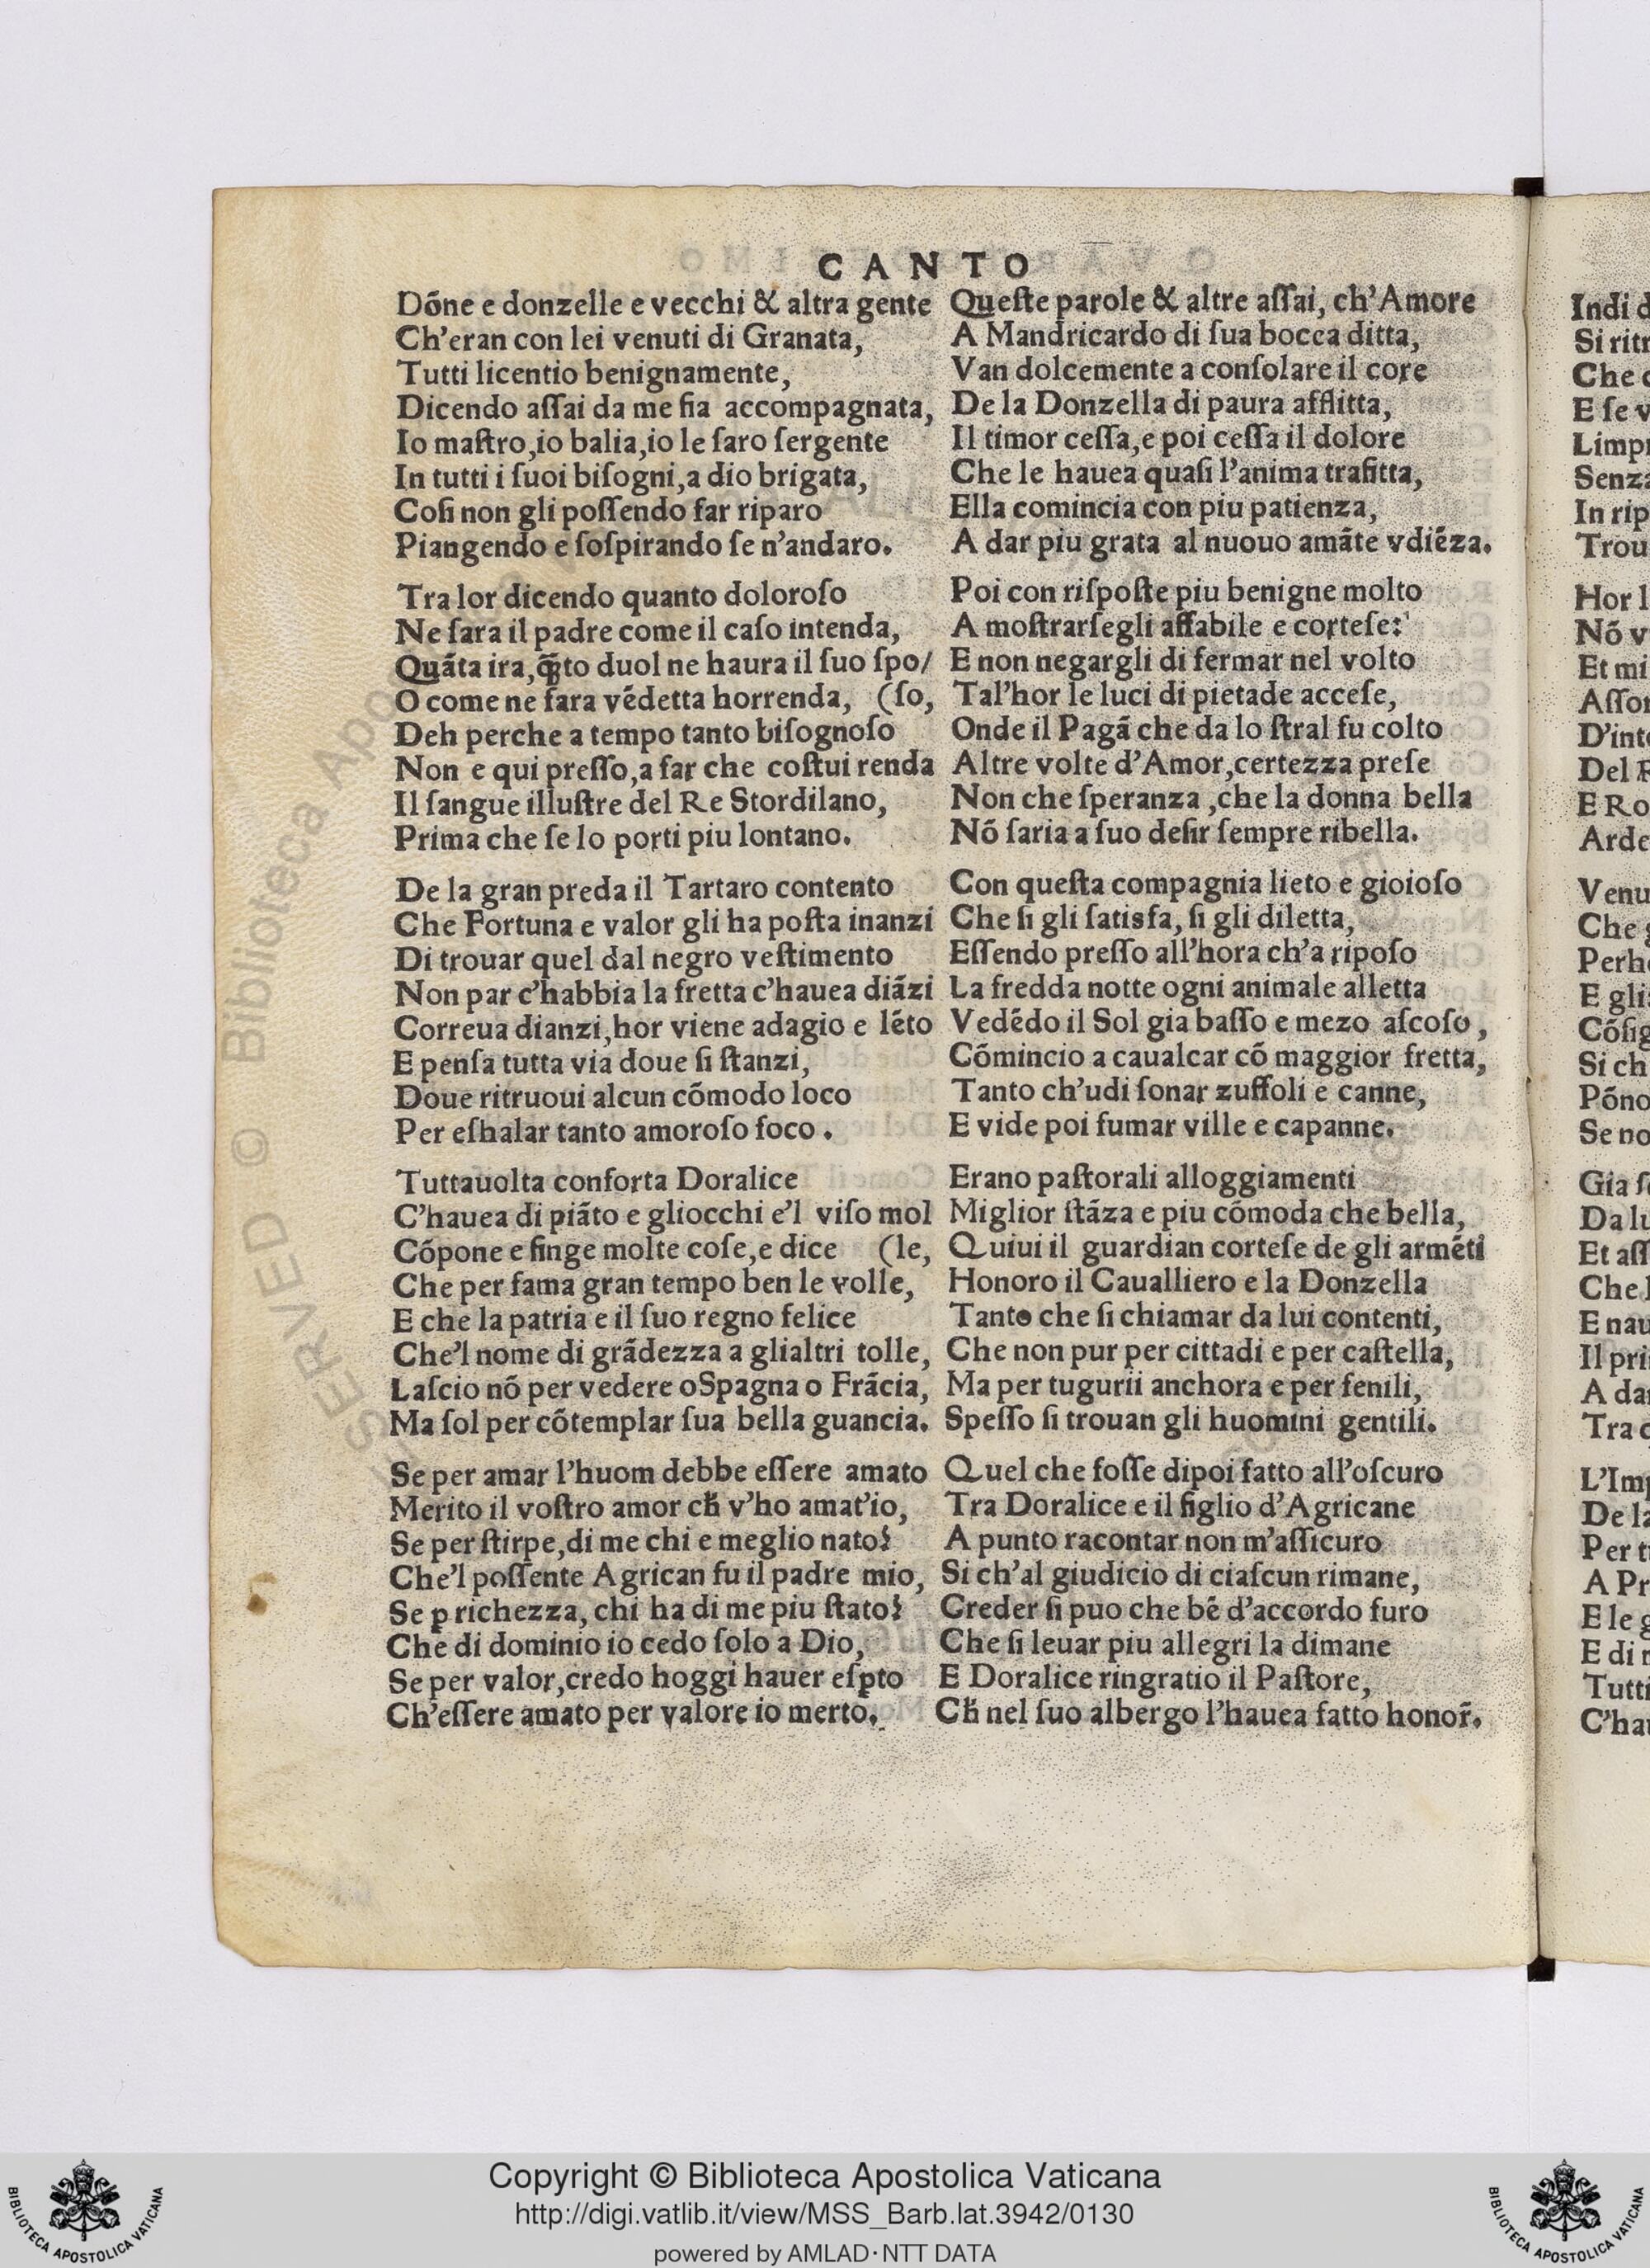 CANTO
Dõne e donzelle e vecchi & altra gente
Ch'eran con lei venuti di Granata,
Tutti licentio benignamente,
Dicendo aſſai da me fia accompagnata,
Io maſtro,io balia,io le ſaro ſergente
In tutti i ſuoi biſogni,a dio brigata,
Coſi non gli poſſendo far riparo
Piangendo e ſoſpirando ſe n'andaro.
Tra lor dicendo quanto doloroſo
Ne ſara il padre come il caſo intenda,
Quãta ira,q̃to duol ne haura il ſuo ſpo/
O come ne fara vẽdetta horrenda, (ſo,
Deh perche a tempo tanto biſognoſo
Non e qui preſſo,a far che coſtui renda
Il ſangue illuſtre del Re Stordilano,
Prima che ſe lo porti piu lontano.
De la gran preda il Tartaro contento
Che Fortuna e valor gli ha poſta inanzi
Di trouar quel dal negro veſtimento
Non par c'habbia la fretta c'hauea diãzi
Correua dianzi,hor viene adagio e lẽto
E penſa tutta via doue ſi ſtanzi,
Doue ritruoui alcun cõmodo loco
Per eſhalar tanto amoroſo foco.
Tuttauolta conforta Doralice
C'hauea di piãto e gliocchi e'l viſo mol
Cõpone e finge molte coſe,e dice (le,
Che per fama gran tempo ben le volle,
E che la patria e il ſuo regno felice
Che'l nome di grãdezza a glialtri tolle,
Laſcio nõ per vedere oSpagna o Frãcia,
Ma ſol per cõtemplar ſua bella guancia.
Se per amar l'huom debbe eſſere amato
Merito il voſtro amor cħ v'ho amat'io,
Se per ſtirpe,di me chi e meglio nato?
Che'l poſſente Agrican fu il padre mio,
Se ꝑ richezza, chi ha di me piu ſtato?
Che di dominio io cedo ſolo a Dio,
Se per valor,credo hoggi hauer eſꝑto
Ch'eſſere amato per valore io merto.
Queſte parole & altre aſſai, ch'Amore
A Mandricardo di ſua bocca ditta,
Van dolcemente a conſolare il core
De la Donzella di paura afflitta,
Il timor ceſſa,e poi ceſſa il dolore
Che le hauea quaſi l'anima trafitta,
Ella comincia con piu patienza,
A dar piu grata al nuouo amãte vdiẽza.
Poi con riſpoſte piu benigne molto
A moſtrarſegli affabile e corteſe:
E non negargli di fermar nel volto
Tal'hor le luci di pietade acceſe,
Onde il Pagã che da lo ſtral fu colto
Altre volte d'Amor,certezza preſe
Non che ſperanza ,che la donna bella
Nõ ſaria a ſuo deſir ſempre ribella.
Con queſta compagnia lieto e gioioſo
Che ſi gli ſatisfa, ſi gli diletta,
Eſſendo preſſo all'hora ch'a ripoſo
La fredda notte ogni animale alletta
Vedẽdo il Sol gia baſſo e mezo aſcoſo,
Cõmincio a caualcar cõ maggior fretta,
Tanto ch'udi ſonar zuffoli e canne,
E vide poi fumar ville e capanne.
Erano paſtorali alloggiamenti
Miglior ſtãza e piu cõmoda che bella,
Quiui il guardian corteſe de gli armẽti
Honoro il Caualliero e la Donzella
Tanto che ſi chiamar da lui contenti,
Che non pur per cittadi e per caſtella,
Ma per tugurii anchora e per fenili,
Speſſo ſi trouan gli huomini gentili.
Quel che foſſe dipoi fatto all'oſcuro
Tra Doralice e il figlio d'Agricane
A punto racontar non m'aſſicuro
Si ch'al giudicio di ciaſcun rimane,
Creder ſi puo che bẽ d'accordo furo
Che ſi leuar piu allegri la dimane
E Doralice ringratio il Paſtore,
Cħ nel ſuo albergo l'hauea fatto honor̃.
Indi d
Si ritr
Che c
E ſe v
Limpr
Senza
In rip
Trou
Hor l
Nõ v
Et mi
Aſſor
D'int
Del R
E Ro
Arde
Venu
Che g
Perh
E gli
Cõſig
Si ch
Põno
Se no
Gia ſ
Da lu
Et aſſ
Che l
E nau
Il pri
A da
Tra c
L'Imp
De la
Per t
A Pr
E le g
E di
Tutti
C'ha
SERVED © Biblioteca Apo
Copyright © Biblioteca Apostolica Vaticana
http://digi.vatlib.it/view/MSS_Barb.lat.3942/0130
powered by AMLAD·NTT DATA
BIBLIOTECA APOSTOLICA VATICANA
BIBLIOTECA APOSTOLICA VATICANA